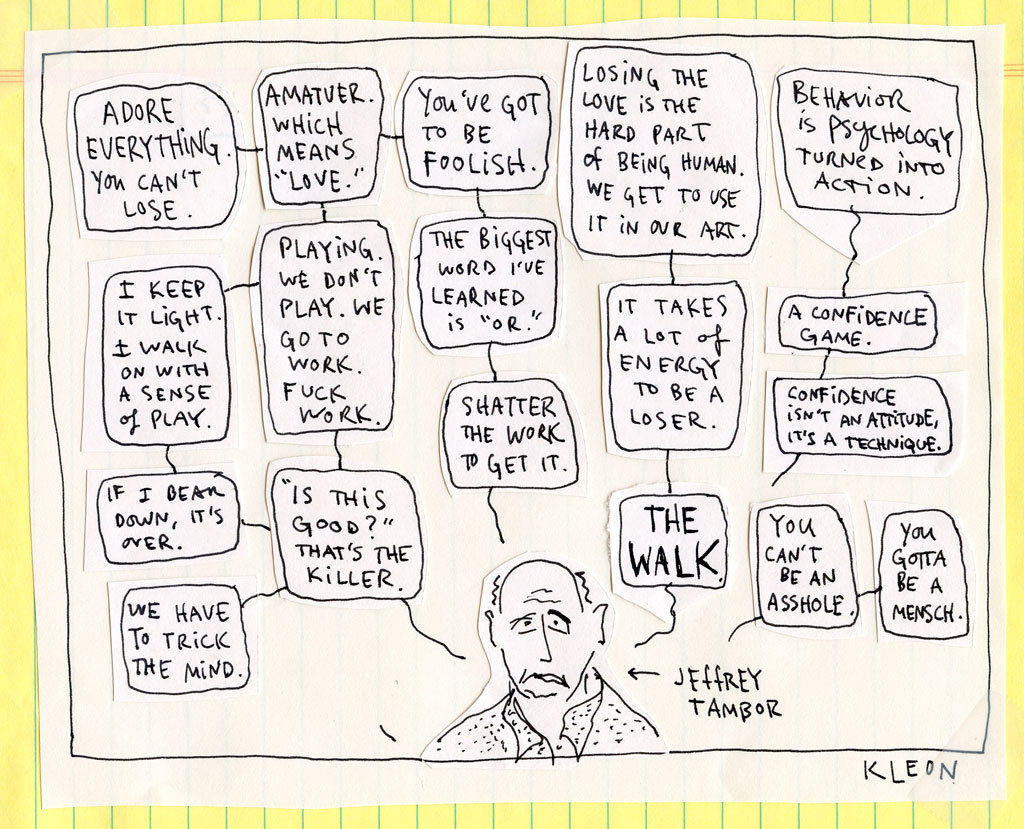 ADORE
EVERYTHING.
YOU CAN'T
LOSE.
AMATUER.
WHICH
MEANS
"LOVE."
YOU'VE GOT
TO BE
FOOLISH.
LOSING THE
LOVE IS THE
HARD PART
OF BEING HUMAN.
WE GET TO USE
IT IN OUR ART.
BEHAVIOR
IS PSYCHOLOGY
TURNED INTO
ACTION.
I KEEP
IT LIGHT.
I WALK
ON WITH
A SENSE
OF PLAY.
PLAYING.
WE DON'T
PLAY. WE
GO TO
WORK.
FUCK
WORK.
THE BIGGEST
WORD I'VE
LEARNED
IS "OR."
IT TAKES
A LOT OF
ENERGY
TO BE A
LOSER.
A CONFIDENCE
GAME.
CONFIDENCE
ISN'T AN ATTITUDE,
IT'S A TECHNIQUE.
SHATTER
THE WORK
TO GET IT.
IF I BEAR
DOWN, IT'S
OVER.
"IS THIS
GOOD?"
THAT'S THE
KILLER.
THE
WALK.
YOU
CAN'T
BE AN
ASSHOLE.
YOU
GOTTA
BE A
MENSCH.
WE HAVE
TO TRICK
THE MIND.
← JEFFREY
TAMBOR
KLEON